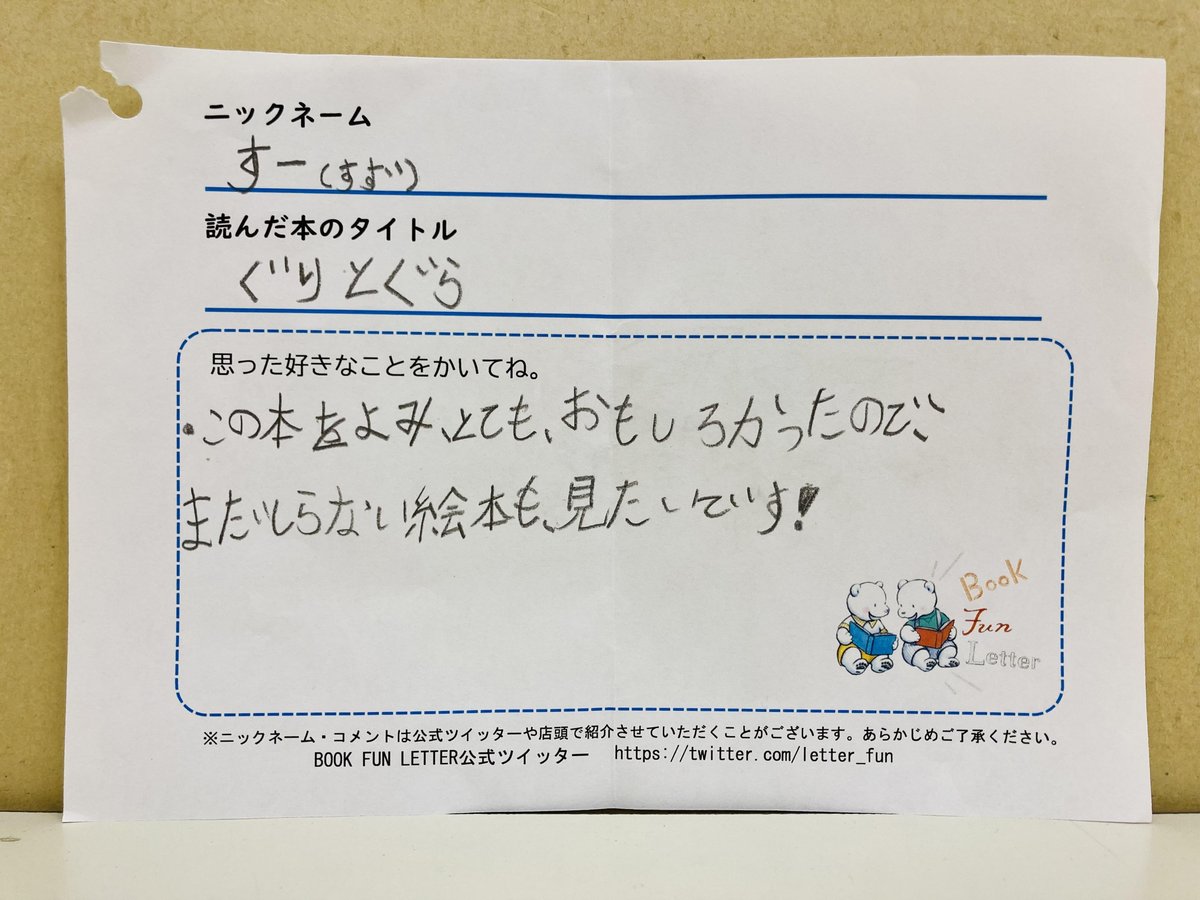 ニックネーム
すー(すず)
読んだ本のタイトル
ぐりとぐら
思った好きなことをかいてね。
・この本をよみ、とても、おもしろかったので、
まだしらない絵本も、見たいです!
Book
Fun
Letter
※ニックネーム・コメントは公式ツイッターや店頭で紹介させていただくことがございます。あらかじめご了承ください。
BOOK FUN LETTER公式ツイッター https://twitter.com/letter_fun